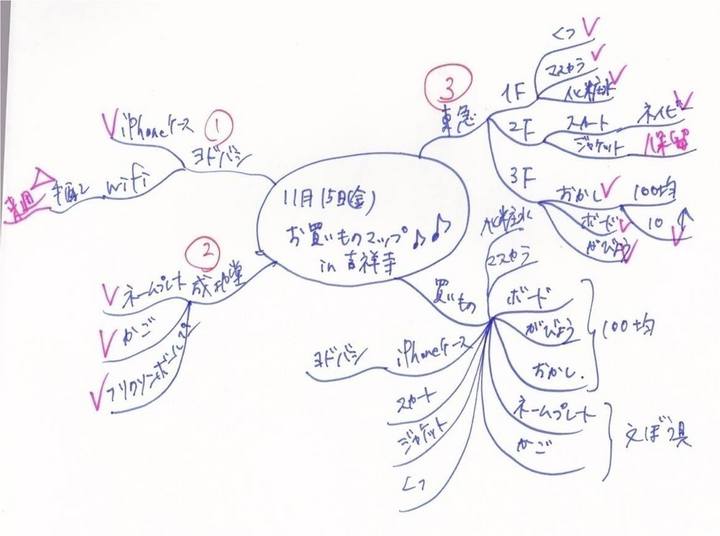 11月15日(金)
お買いものマップ♪♪
in 吉祥寺
①
ヨドバシ
iPhoneケース
wifi
②
ネームプレート
かご
③
東急
1F
くつ
マスカラ
化粧水
2F
スカート
ネイビー
ジャケット
保留
3F
おかし
100均
ボード
10
がびょう
買いもの
化粧水
マスカラ
ボード
がびょう
おかし.
100均
ネームプレート
かご
文ぼう具
iPhoneケース
ヨドバシ
スカート
ジャケット
くつ